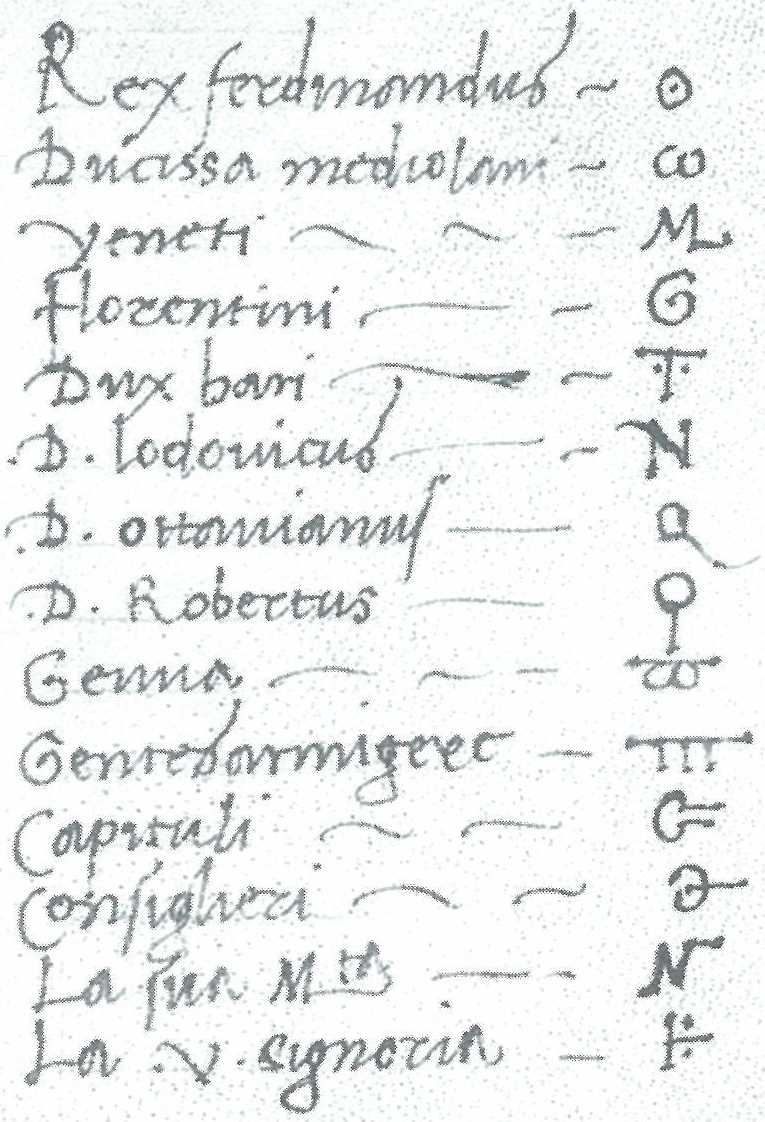 Rex ferdinandus ~ ʘ
Ducissa mediolani ~ ꝏ
Veneti ~ ~ — M
Florentini — — G
Dux bari — — T
.D. lodouicus — — N
.D. ottauianus — Q
.D. Robertus —
Genua — ~ —
Gentesarmigere —
Capituli ~ ~
Consiglieri ~ ~
La sua Mtà — — N
La .V. signoria —